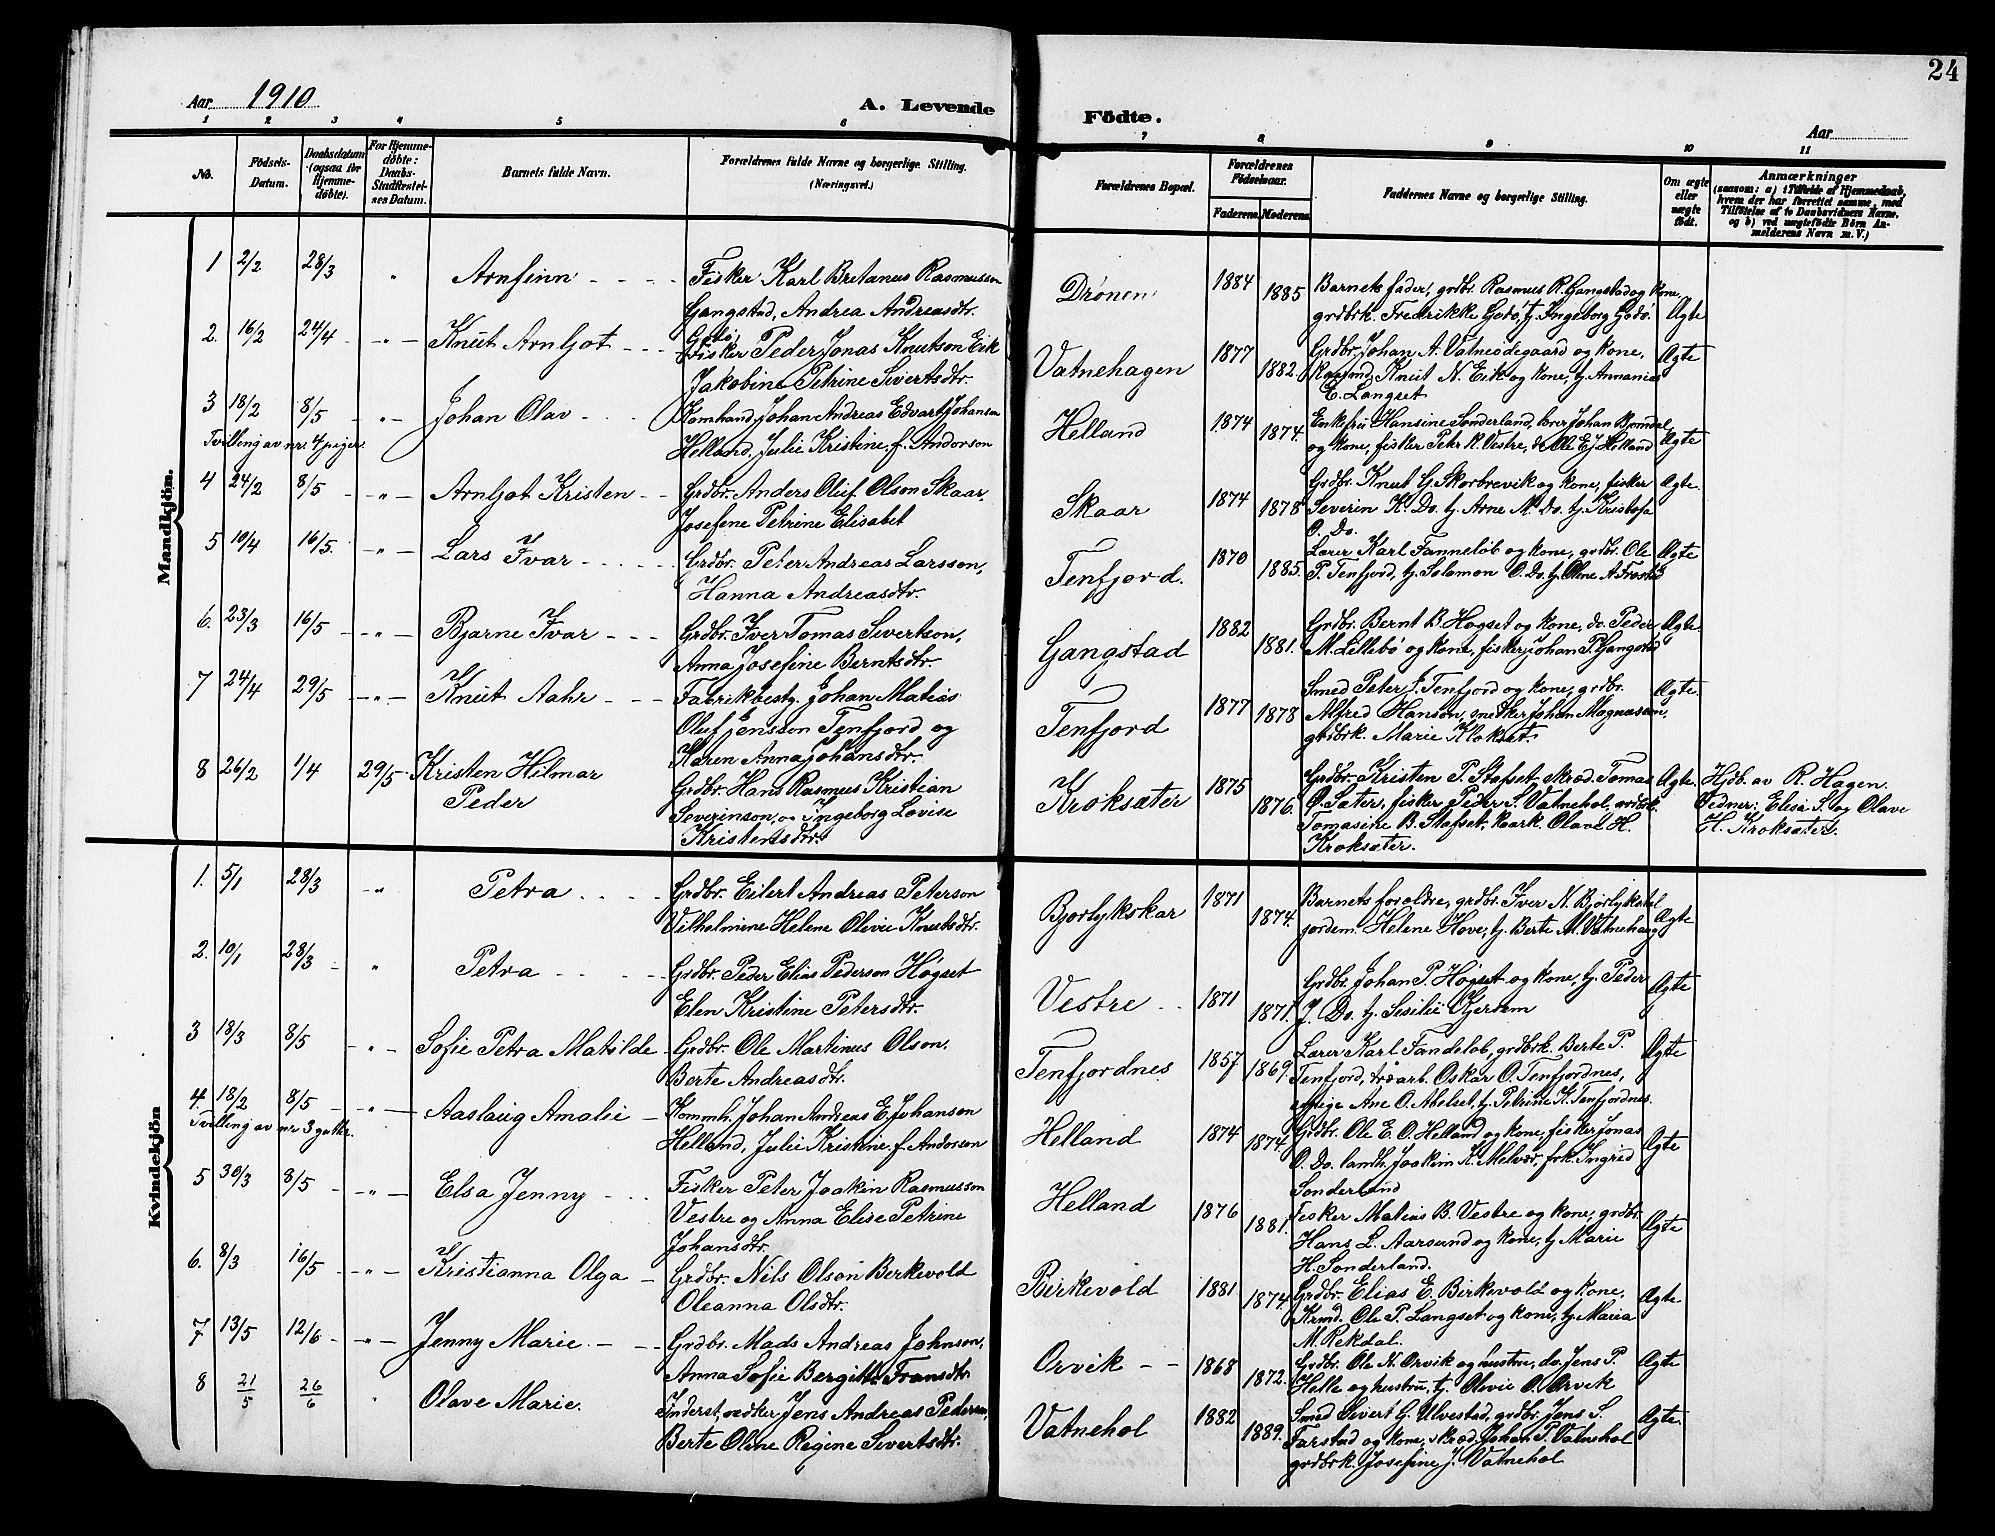 24
Aar 1910
A. Levende
Födte.
Aar
1 2 3 4 5 6 7 8 9 10 11
No.
Födsels-Datum.
Daabsdatum (ogsaa for Hjemmedøbte).
For Hjemmedøbte: Daabs-Stadfæstelses Datum.
Barnets fulde Navn.
Forældrenes fulde Navne og borgerlige Stilling.
(Næringsvei.)
Forældrenes Bopæl.
Forældrenes Födselsaar.
Faderens. Moderens.
Faddernes Navne og borgerlige Stilling.
Om ægte eller uægte födt.
Anmærkninger
(saasom: a) i Tilfælde af Hjemmedaab, hvem der har forrettet samme, med Tilföielse af to Daabsvidners Navne, og b) ved uægtefødte Börn Anmelderens Navn m. V.)
Mandkjön.
1 2/2 28/3 " Arnfinn
Fisker Karl Bretanus Rasmusson
Gangstad, Andrea Andreasdtr.
Godø,
Drønen 1884 1885
Barnets fader, grdbr. Rasmus R. Gangstad og kone,
grdbrk. Fredrikke Godø, tj. Ingeborg Godø.
Ægte
2. 16/2 24/4 " Knut Arnljot
Fisker Peder Jonas Knutson Eik
Jakobine Petrine Sivertsdtr.
Vatnehagen 1877 1882.
Grdbr. Johan A. Vatneødegaard og kone,
Knut N. Eik og kone, tj. Annanias
E. Langset
Ægte
3 18/2 8/5 " Johan Olav
Tvilling av nr. 4 piger.
Komhand. Johan Andreas Edvart Johansen
Helland, Julie Kristine f. Anderson
Helland 1874 1874.
Enkefru Hansine Sønderland, Johan Bjømdal
og kone, fisker Petr R. Vestre, do Ole E J Helland
Ægte
4 24/2 8/5 " Arnljot Kristen
Grdbr. Anders Oluf Olson Skaar.
Josefine Petrine Elisabet
Skaar 1874 1878
Grdbr. Knut G. Skorbrevik og kone, fisker
Severin K. Do. tj. Arne M. Do. tj. Kristofa
O. Do.
Ægte.
5 10/4 16/5. " Lars Ivar
Grdbr. Peter Andreas Larsson,
Hanna Andreasdtr.
Tenfjord. 1870 1885.
Lærer Karl Fanneløb og kone, grdbr. Ole
P. Tenfjord, tj. Salamon O. Do. tj. Oline A Frostad
Ægte
6. 23/3 16/5 " Bjarne Ivar
Grdbr. Iver Tomas Sivertson,
Anna Josefine Berntsdtr.
Gangstad 1882 1881.
Grdbr. Bernt B. Høgset og kone, do. Peder
M. Lillebø og kone, fisker Johan P. Gangstad
Ægte.
7 24/4 29/5 " Knut Aahr
Fabrikbestg. Johan Matias
Oluf Jensson Tenfjord og
Karen Anna Johansdtr.
Tenfjord 1877 1878
Smed Peter J. Tenfjord og kone, grdbr.
Alfred Hanson, snekker Johan Magnusson,
grdbrk. Marie Klokset.
Ægte.
8 26/2 1/4 29/5 Kristen Hilmar
Peder
Grdbr. Hans Rasmus Kristian
Severinson, og Ingeborg Lovise
Kristensdtr.
Kroksæter 1875 1876.
Grdbr. Kristen P. Stafset, skræd. Tomas
O. Sæter, fisker Peder S. Vatnehol, grdbrk.
Tomasine B. Stafset, kaark. Olave H.
Kroksæter.
Ægte.
Hjdb. av R. Hagen.
Vidner: Elisa P. og Olave
H. Kroksæter.
Kvindekjön
1. 5/1 28/3 " Petra
Grdbr. Eilert Andreas Peterson
Vilhelmine Helene Olivie Knutsdtr.
Bjorlykskar 1871 1874.
Barnets forældre, grdbr. Iver N. Bjorlykstol
jordem. Helene Hove, tj. Berte M. Vatnehaug
Ægte
2. 10/1 28/3 " Petra
Grdbr. Peder Elias Pederson Høgset
Elen Kristine Petersdtr.
Vestre 1871 1871.
Grdbr. Johan P. Høgset og kone, tj. Peder
J. Do. tj. Sisilie Gjerdem
Ægte
3 18/3 8/5 " Sofie Petra Matilde
Grdbr. Ole Martinus Olson.
Berte Andreasdtr.
Tenfjordnes 1857 1869.
Lærer Karl Fandeløb, grdbrk. Berte P.
Tenfjord, træarb. Oskar O. Tenfjordnes,
enslige Ane O. Abelset, tj. Petrine K. Tenfjordnes.
Ægte
4. 18/2 8/5 " Aaslaug Amalie
Tvilling av nr 3 gutter.
Kommh. Johan Andreas E. Johanson
Helland, Julie Kristine f. Anderson
Helland 1874 1874.
Grdbr. Ole E. O. Helland og kone, fisker Jonas
O. Do. landh. Joakim K. Melvær, frk. Ingrid
Sønderland
Ægte
5 30/3 8/5 " Elsa Jenny
Fisker Peter Joakin Rasmusson
Vestre og Anna Elise Petrine
Johansdtr.
Helland 1876 1881.
Fisker Matias B. Vestre og kone, grdbr.
Hans L. Aarsund og kone, tj Marie
H. Sønderland.
Ægte
6. 8/3 16/5 " Kristianna Olga
Grdbr. Nils Olson Berkevold
Oleanna Olsdtr.
Birkevold 1881 1874
Grdbr. Elias E. Birkevold og kone,
Krmd. Ole P. Langset og kone, tj. Maria
M. Rekdal.
Ægte
7 13/5 12/6 " Jenny Marie
Grdbr. Mads Andreas Johnson,
Anna Sofie Bergitte Fransdtr
Orvik 1868 1872.
Grdbr. Ole N. Orvik og hustru, do. Jens P.
Helle og hustru, tj. Olivie O. Orvik
Ægte
8 21/5 26/6 " Olave Marie.
Inderst, snedker Jens Andreas Pederson,
Berte Oline Regine Sivertsdtr.
Vatnehol 1882 1889.
Smed Sivert G. Ulvestad, grdbr. Jens S.
Farstad og kone, skræd. Johan P. Vatnehol
grdbrk. Josefine J. Vatnehol
Ægte.